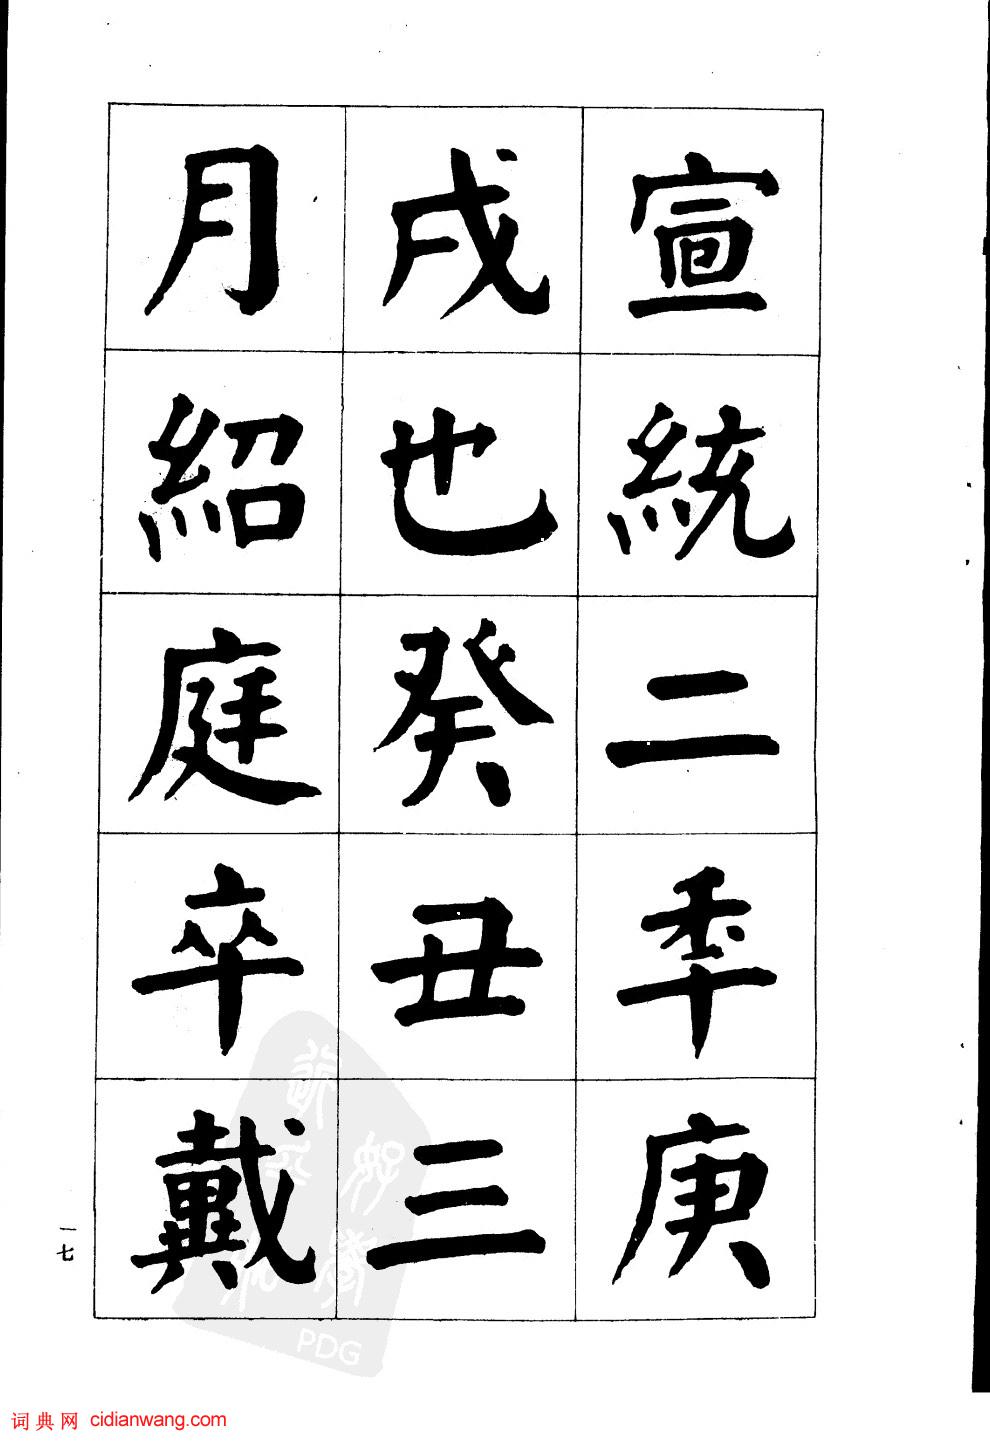 宣統二秊庚
戌也癸丑三
月紹庭卒戴
一七
PDG
词典网 cidianwang.com